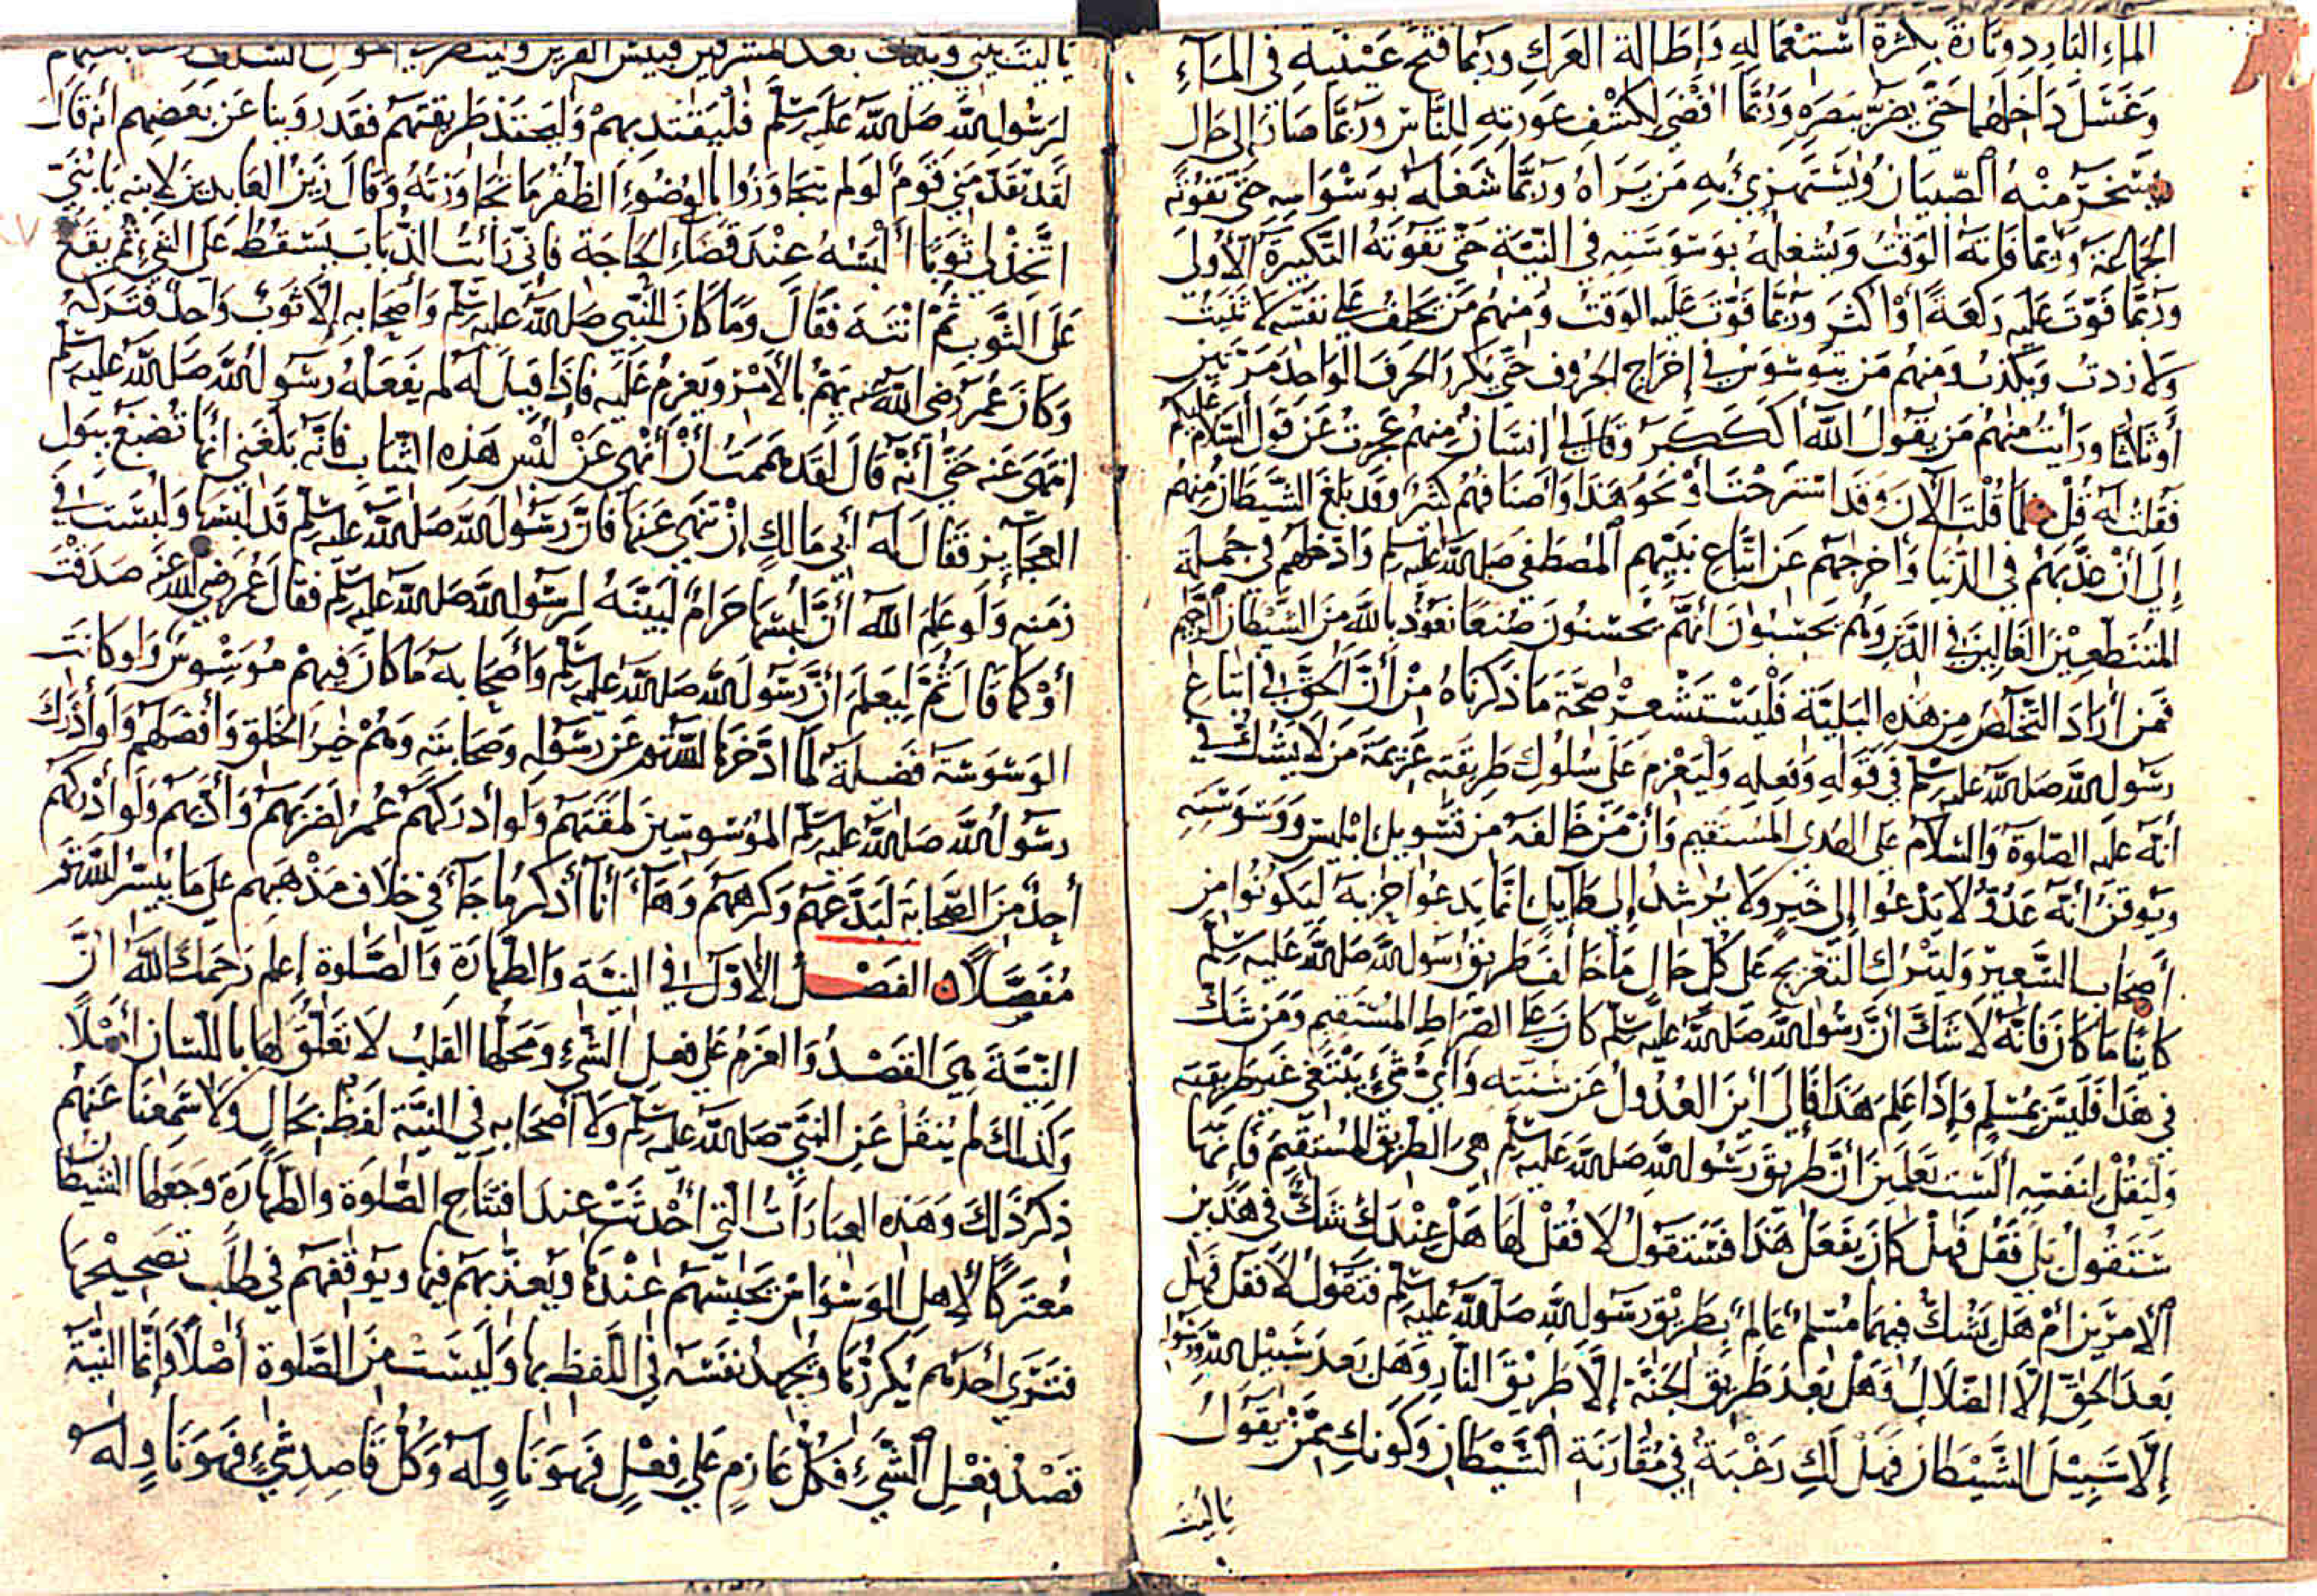 الماء البارد وتارة بكثرة استعماله وإطالة العرك وربما فتح عينيه في الماء
وغسل داخلهما حتى يضر ببصره وربما أفضى لكشف عورته للناس وربما صار إلى حال
يسخر منه الصبيان ويستهزئ به من يراه وربما شغله بوسواسه حتى تفوته
الجماعة وربما فاته الوقت ويشغله بوسوسته في النية حتى تفوته التكبيرة الأولى
وربما فوت عليه ركعة أو أكثر وربما فوت عليه الوقت ومنهم من يحلف على نفسه لا ثنيت
ولا زدت ويكذب ومنهم من يتوسوس في إخراج الحروف حتى يكرر الحرف الواحد مرتين
أو ثلاثا ورأيت منهم من يقول الله أكككبر وقال لي إنسان منهم عجزت عن قول السلام عليكم
فقلت له قل كما قلت الآن وقد استرحت أو نحو هذا وأصنافهم كثير وقد بلغ الشيطان منهم
إلى أن عذبهم في الدنيا وأخرجهم عن اتباع نبيهم المصطفى صلى الله عليه وسلم وأدخلهم في جملة
المتنطعين الغالين في الدين وهم يحسبون أنهم يحسنون صنعا نعوذ بالله من الشيطان الرجيم
فمن أراد التخلص من هذه البلية فليستشعر صحة ما ذكرناه من أن الحق في اتباع
رسول الله صلى الله عليه وسلم في قوله وفعله وليعزم على سلوك طريقته عزيمة من لا يشك في
أنه عليه الصلوة والسلام على الهدى المستقيم وأن من خالفه من تسويل إبليس ووسوسته
ويوقن أنه عدو لا يدعوا إلى خير ولا يرشد إلى طايل إنما يدعوا حزبه ليكونوا من
أصحاب السعير وليترك التعريج على كل حال ما خالف طريق رسول الله صلى الله عليه وسلم
كاينا ما كان فإنه لا شك أن رسول الله صلى الله عليه وسلم كان على الصراط المستقيم ومن شك
في هذا فليس بمسلم وإذا علم هذا فإلى أين العدول عن سنته وأي شيء يبتغى غير طريقته
وليقل لنفسه ألست تعلمين أن طريق رسول الله صلى الله عليه وسلم هي الطريق المستقيم فإنها
ستقول بلى فقل فهل كان يفعل هذا فستقول لا فقل لها هل عندك شك في هذين
الأمرين أم هل يشك فيهما مسلم عالم بطريق رسول الله صلى الله عليه وسلم فتقول لا فقل فهل
بعد الحق إلا الضلال وهل بعد طريق الجنة إلا طريق النار وهل بعد سبيل الله ورسوله
إلا سبيل الشيطان فهل لك رغبة في مقارنة الشيطان وكونك ممن يقول
ياليت
ياليت بيني وبينك بعد المشرقين فبيس القرين ولينظر أحوال السلف
لرسول الله صلى الله عليه وسلم فليقتد بهم وليتخذ طريقتهم فقد روينا عن بعضهم أنه قال
لقد تقدمني قوم لو لم يتجاوزوا بالوضوء الظفر ما تجاوزته وقال زين العابدين لابنه يا بني
اتخذ لي ثوبا ألبسه عند قضاء الحاجة فإني رأيت الذباب يسقط على الشيء ثم يقع
على الثوب ثم انتبه فقال وما كان للنبي صلى الله عليه وسلم وأصحابه إلا ثوب واحد فتركه
وكان عمر رضي الله عنه يهم بالأمر ويعزم عليه فإذا قيل له لم يفعله رسول الله صلى الله عليه وسلم
انتهى عنه حتى أنه قال لقد هممت أن أنهى عن لبس هذه الثياب فإنه بلغني أنها تصبغ ببول
العجايز فقال له أبي ما لك إن تنهى عنها فإن رسول الله صلى الله عليه وسلم قد لبسها ولبست في
زمنه ولو علم الله أن لبسها حرام لبينه لرسول الله صلى الله عليه وسلم فقال عمر رضي الله عنه صدقت
أو كما قال ثم ليعلم أن رسول الله صلى الله عليه وسلم وأصحابه ما كان فيهم موسوس ولو كانت
الوسوسة فضيلة لما ادخرها الله تعالى عن رسوله وصحابته وهم خير الخلق وأفضلهم ولو أدرك
رسول الله صلى الله عليه وسلم الموسوسين لمقتهم ولو أدركهم عمر لضربهم وأدبهم ولو أدركهم
أحد من الصحابة لبدعهم وكرههم وها أنا أذكر ما جاء في خلاف مذهبهم على ما يسر الله تعالى
مفصلا الفصل الأول في النية والطهارة والصلوة إعلم رحمك الله أن
النية هي القصد والعزم على فعل الشيء ومحلها القلب لا تعلق لها باللسان أصلا
وكذلك لم ينقل عن النبي صلى الله عليه وسلم ولا أصحابه في النية لفظ بحال ولا سمعنا عنهم
ذكر ذلك وهذه العبادات التي أحدثت عند افتتاح الصلوة والطهارة وجعلها الشيطان
معتركا لأهل الوسواس يحبسهم عندها ويعذبهم فيها ويوقفهم في طلب تصحيحها
فترى أحدهم يكررها ويجهد نفسه في اللفظ بها وليست من الصلوة أصلا وإنما النية
قصد فعل الشيء فكل عازم على فعل فهو ناو له وكل قاصد شيء فهو ناو له